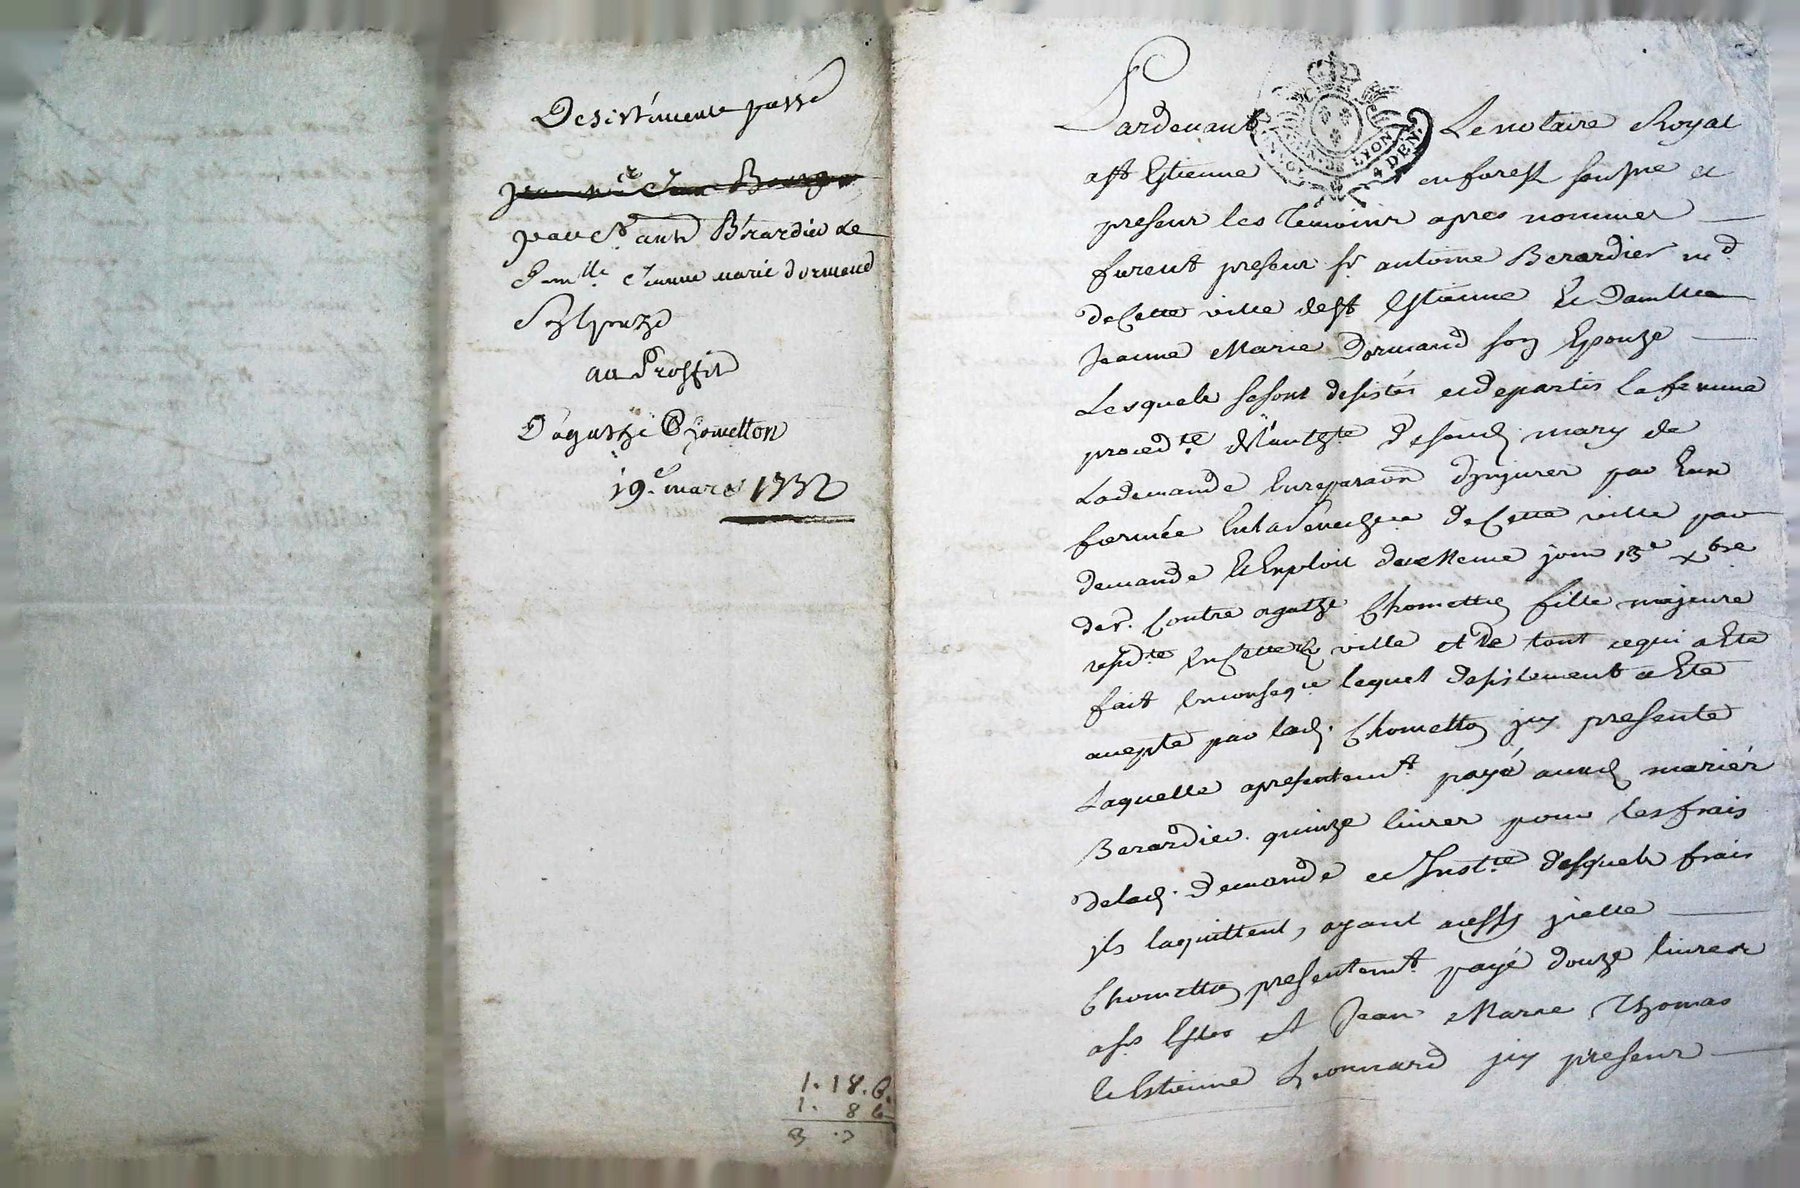 Desistement passé
jean Bte ant Bérardier &
Demlle Jeanne marie dormand
Son Epouze
au Proffit
D'agathe Chometton
19e mars 1732
1. 18. 6.
1. 8 6
3
Pardevant Le notaire Royal
a st Estienne en forest soussne et
present les temoins apres nommes
furent present sr antoine Berardier md
de Cette ville de st Estienne et damlle
Jeanne Marie Dormand son Epouze
Lesquels se sont desistés et departis la femme
proced.te de l'auth.te de son d. mary de
La demande en reparaon d'injures par Eux
formée En la senechee de Cette ville par
demande et Exploit du meme jour 13e xbre
der. Contre agathe Chometton fille majeure
resid.te En Cette d. ville et de tout ce qui a Eté
fait En conseqce lequel desistement a Eté
accepté par lad. Chometton icy presente
Laquelle a presentemt payé aux d. mariés
Berardier quinze livres pour les frais
de lad. demande et Inst.ce desquels frais
ils l'aquittent, ayant aussy icelle
Chometton presentemt payé douze livres
a srs et Jean Marie Thomas
et Estienne Leonnard icy present
LYON
4 DEN.